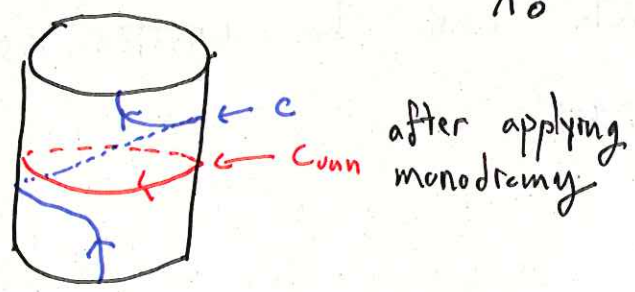 λ0
← C
← Cvan
after applying
monodromy